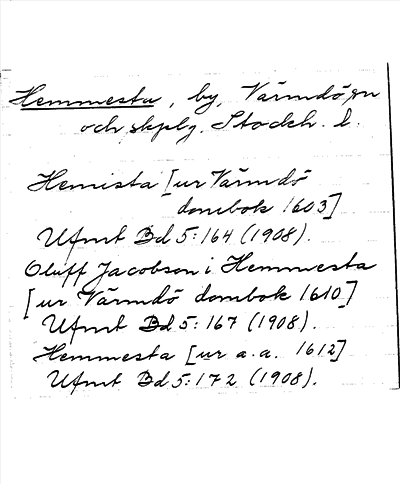 Hemmesta, by, Värmdö sn
och skplg. Stockh. l.
Hemista [ur Värmdö
dombok 1603]
Ufmt Bd 5:164 (1908).
Oluff Jacobson i Hemmesta
[ur Värmdö dombok 1610]
Ufmt Bd 5:167 (1908).
Hemmesta [ur a.a. 1612]
Ufmt Bd 5:172 (1908).